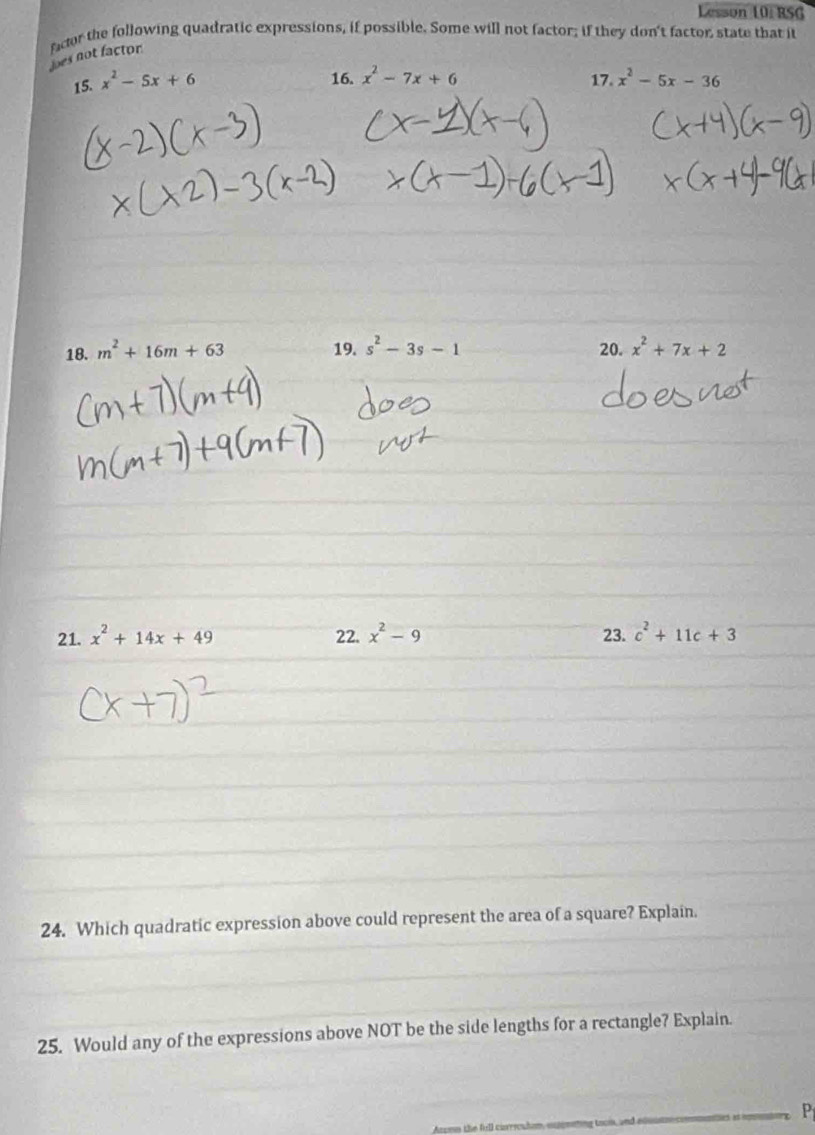 Lesson 10: RSG
factor the following quadratic expressions, if possible. Some will not factor; if they don't factor, state that it
does not factor.
15. x² − 5x + 6 16. x² − 7x + 6 17. x² − 5x − 36
(x-2)(x-3) (x-1)(x-6) (x+4)(x-9)
x(x2)-3(x-2) x(x-1)-6(x-1) x(x+4)-9(x
18. m² + 16m + 63 19. s² − 3s − 1 20. x² + 7x + 2
(m+7)(m+9) does does not
m(m+7)+9(m+7) not
21. x² + 14x + 49 22. x² − 9 23. c² + 11c + 3
(x+7)²
24. Which quadratic expression above could represent the area of a square? Explain.
25. Would any of the expressions above NOT be the side lengths for a rectangle? Explain.
Access the full curriculum, supporting tools, and